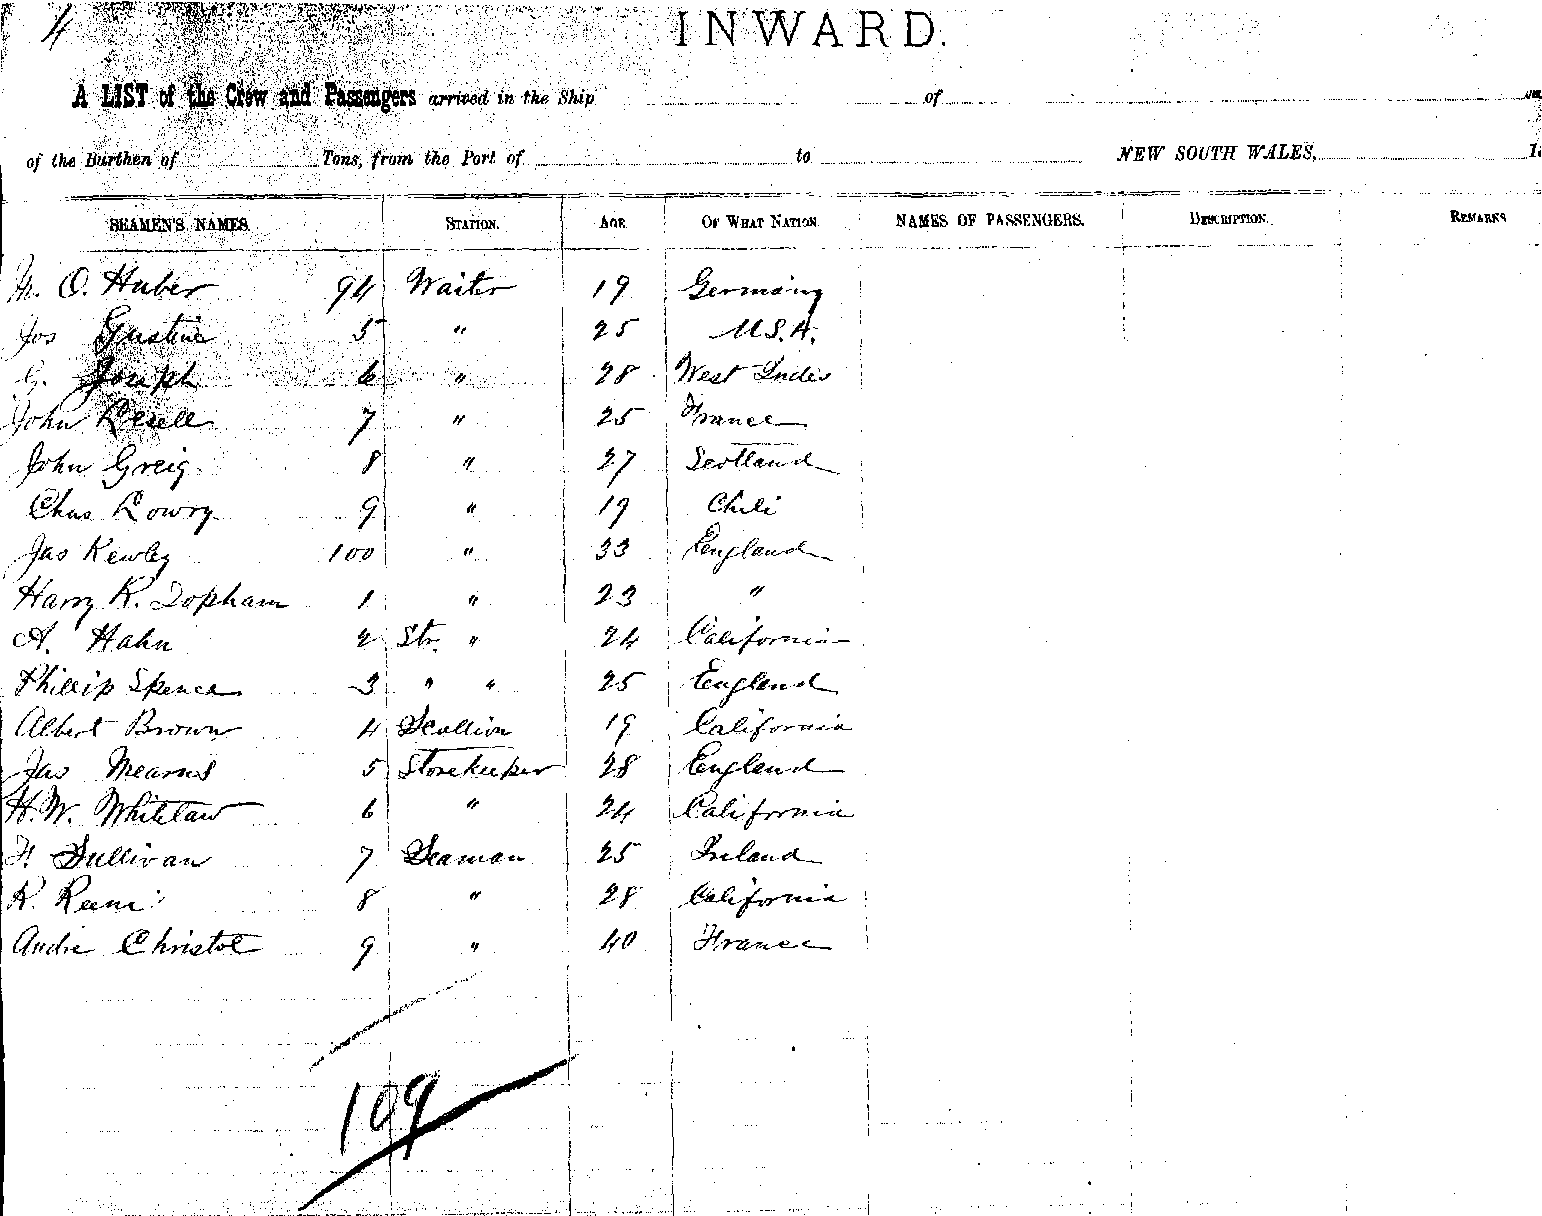 4
INWARD.
A LIST of the Crew and Passengers arrived in the Ship of
of the Burthen of Tons, from the Port of to NEW SOUTH WALES, 18
SEAMEN'S NAMES. STATION. AGE OF WHAT NATION. NAMES OF PASSENGERS. DESCRIPTION. REMARKS
M. O. Huber 94 Waiter 19 Germany
Jos Gustine 5 " 25 U.S.A.
G. Joseph 6 " 28 West Indes
John 7 " 25 France
John Greig 8 " 27 Scotland
Chas Lowry 9 " 19 Chili
Jas Kewley 100 " 33 England
Harry K. Topham 1 " 23 "
A. Hahn 2 Str. " 24 California
Phillip Spence 3 " " 25 England
Albert Brown 4 Scullion 19 California
Jas Mearns 5 Storekeeper 28 England
H. W. Whitelaw 6 " 24 California
F. Sullivan 7 Seaman 25 Ireland
R. 8 " 28 California
Andre Christol 9 " 40 France
109